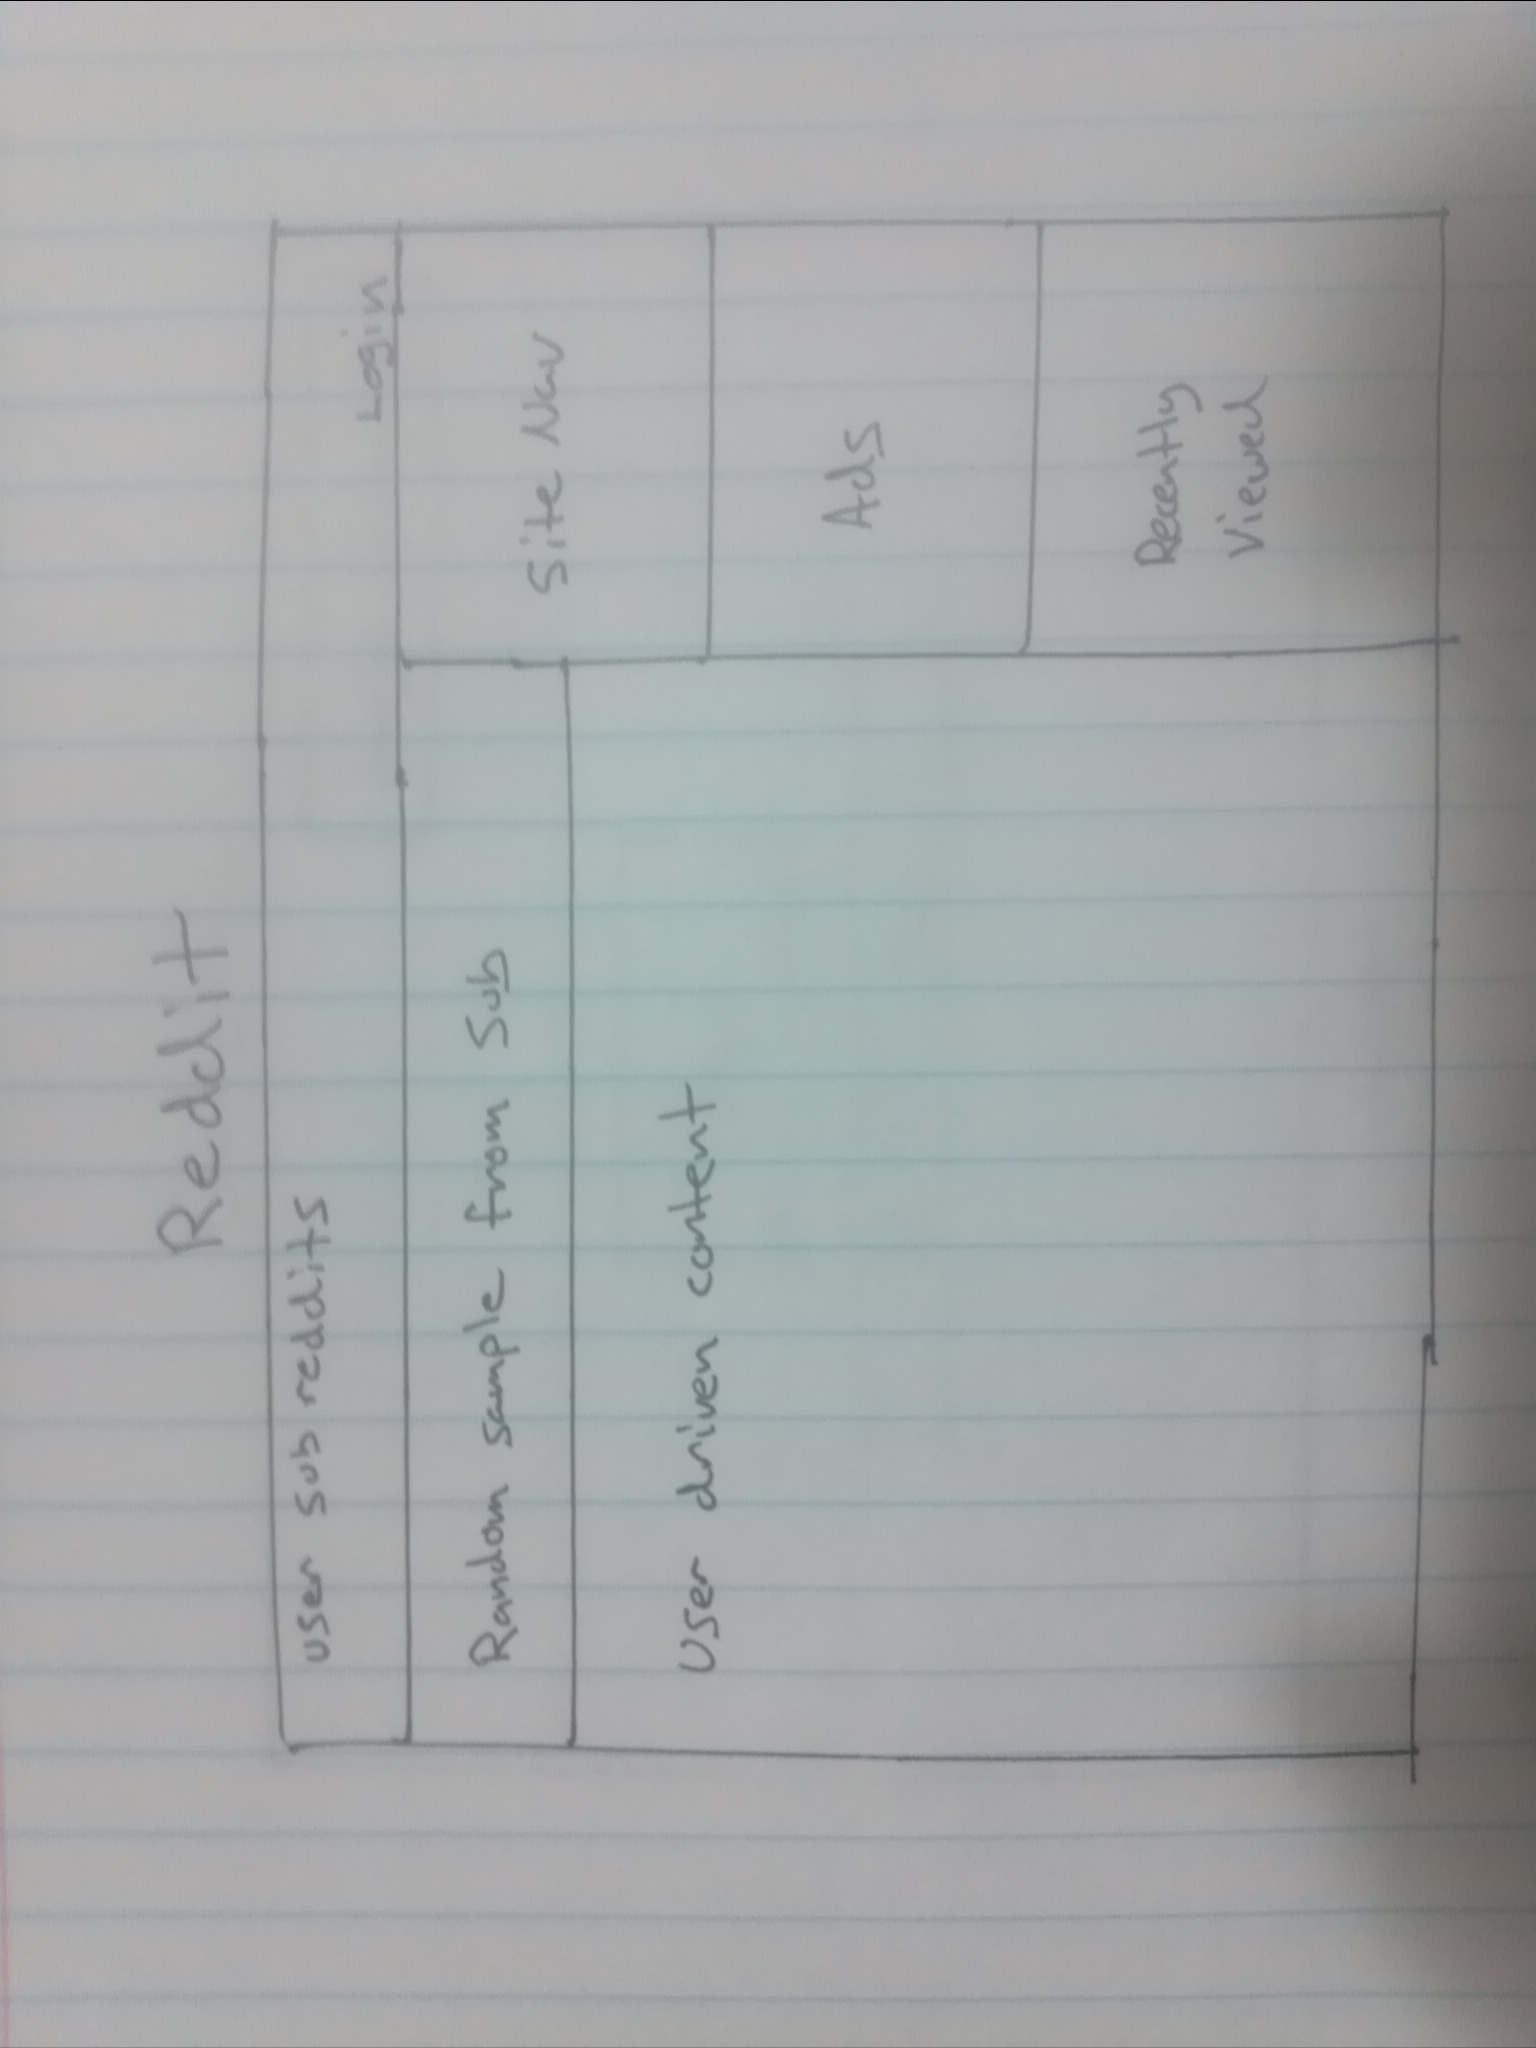 Reddit
user sub reddits
Login
Random sample from Sub
Site Nav
User driven content
Ads
Recently
Viewed